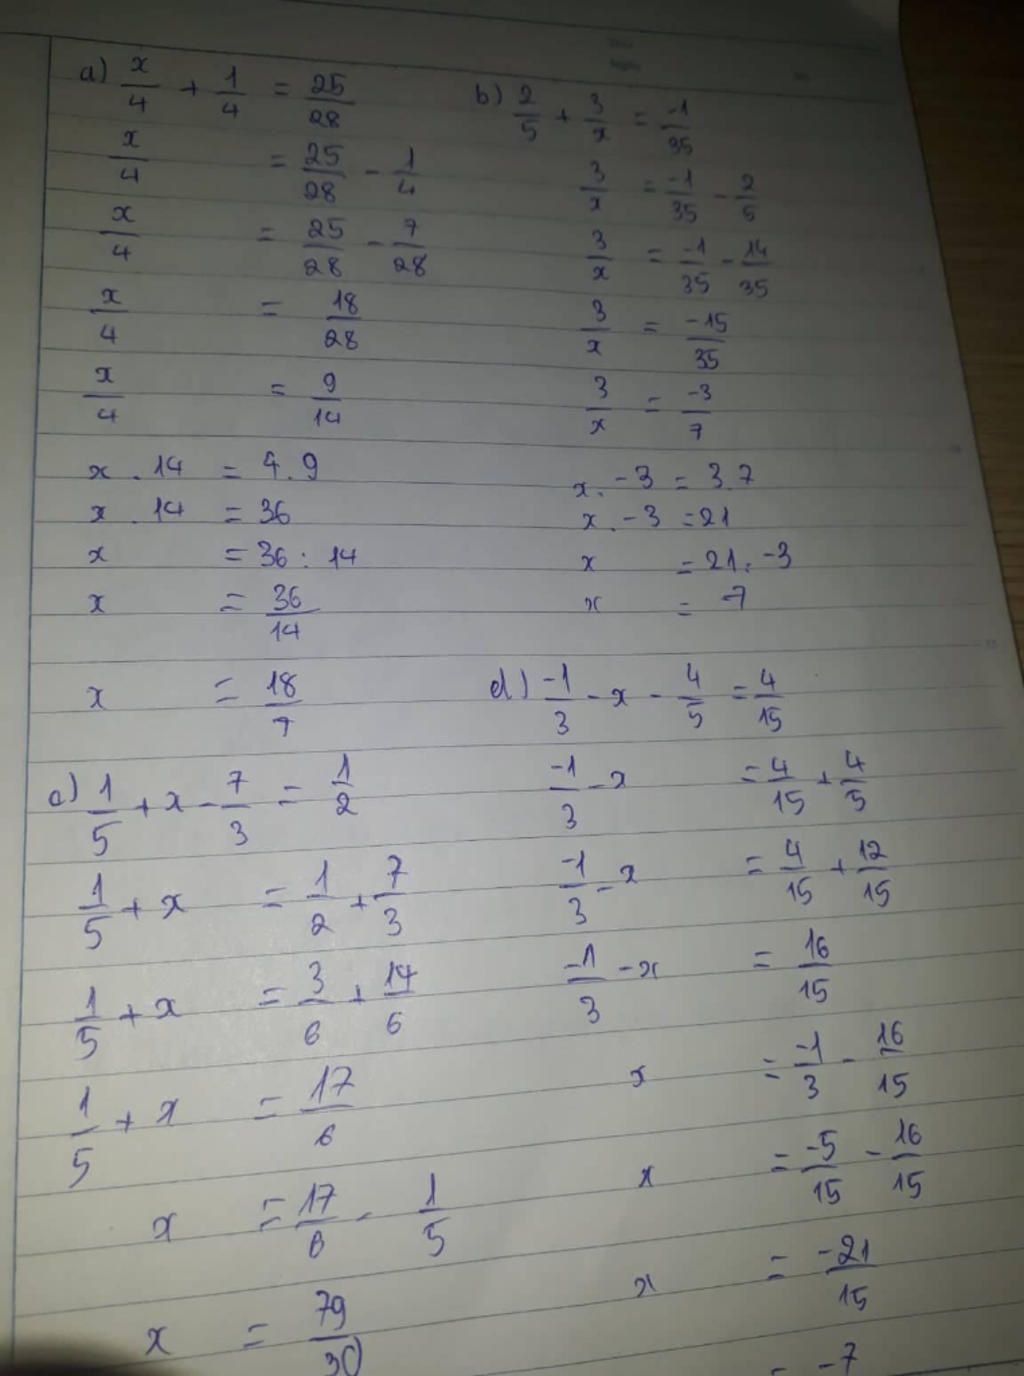 a) x/4 + 1/4 = 25/28
x/4 = 25/28 - 1/4
x/4 = 25/28 - 7/28
x/4 = 18/28
x/4 = 9/14
x . 14 = 4 . 9
x . 14 = 36
x = 36 : 14
x = 36/14
x = 18/7
b) 2/5 + 3/x = -1/35
3/x = -1/35 - 2/5
3/x = -1/35 - 14/35
3/x = -15/35
3/x = -3/7
x . -3 = 3 . 7
x . -3 = 21
x = 21 : -3
x = -7
c) 1/5 + x - 7/3 = 1/2
1/5 + x = 1/2 + 7/3
1/5 + x = 3/6 + 14/6
1/5 + x = 17/6
x = 17/6 - 1/5
x = 79/30
d) -1/3 - x - 4/5 = 4/15
-1/3 - x = 4/15 + 4/5
-1/3 - x = 4/15 + 12/15
-1/3 - x = 16/15
x = -1/3 - 16/15
x = -5/15 - 16/15
x = -21/15
= -7